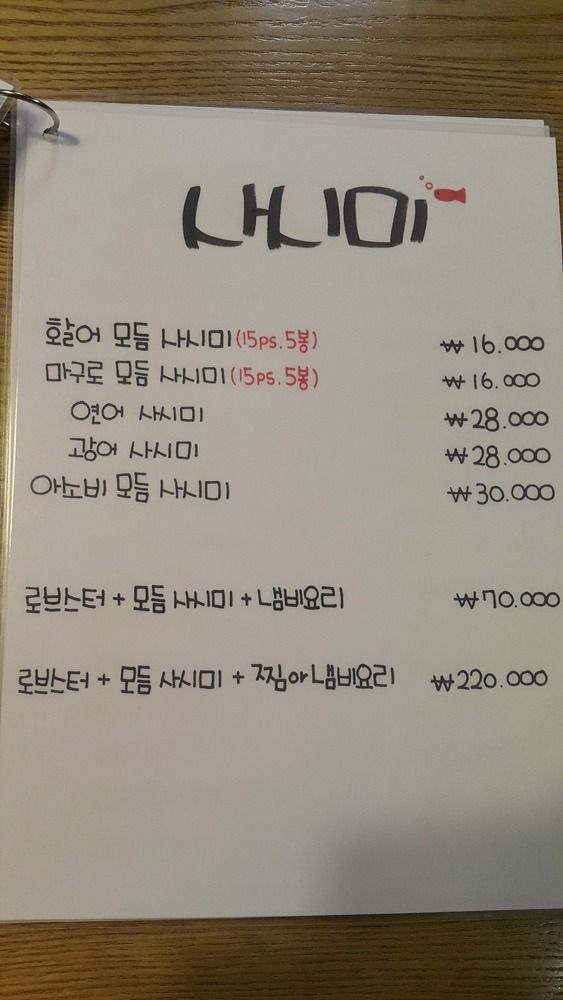 사시미
활어 모듬 사시미 (15ps. 5봉) ₩ 16.000
마구로 모듬 사시미 (15ps. 5봉) ₩ 16.000
연어 사시미 ₩28.000
광어 사시미 ₩28.000
아소비 모듬 사시미 ₩30.000
로브스터 + 모듬 사시미 + 냄비요리 ₩70.000
로브스터 + 모듬 사시미 + 찜or냄비요리 ₩220.000